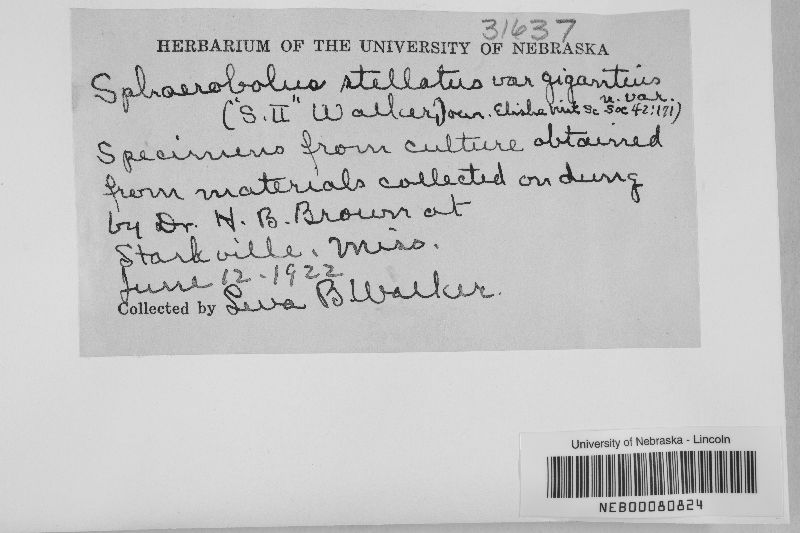 31637
HERBARIUM OF THE UNIVERSITY OF NEBRASKA
Sphaerobolus stellatus var giganteus
n. var.
("S. II" Walker, Jour. Elisha Mit Sc Soc 42:171)
Specimens from culture obtained
from materials collected on dung
by Dr. H. B. Brown at
Starkville, Miss.
June 12-1922
Collected by Leva B. Walker.
University of Nebraska - Lincoln
NEB00080824